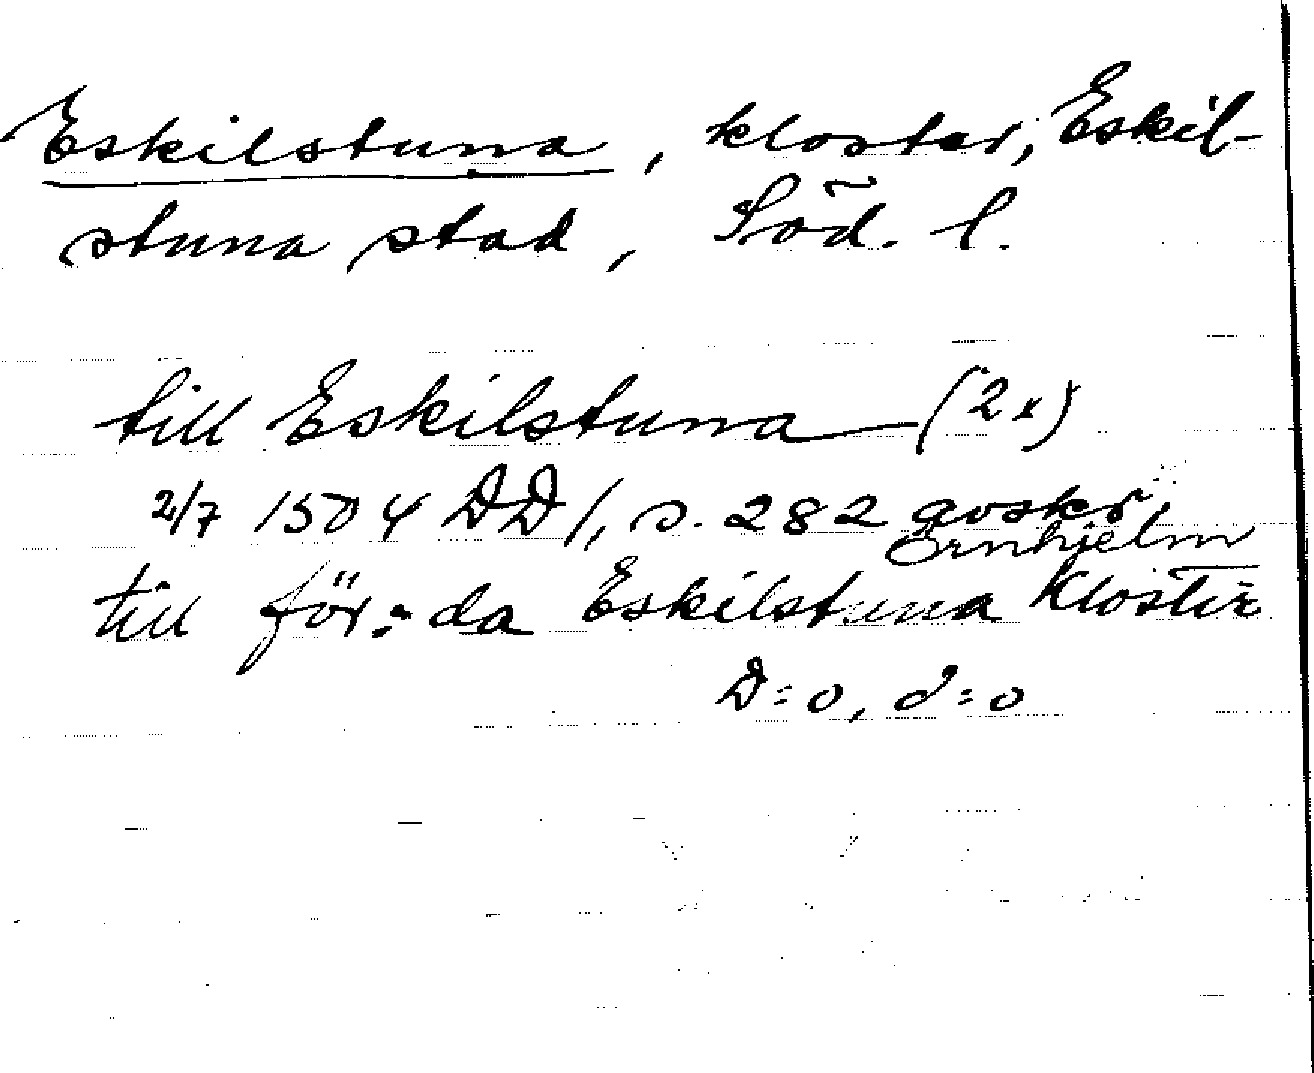 Eskilstuna, kloster, Eskil-
stuna stad, Söd. l.
till Eskilstuna (2x)
2/7 1504 DD 1, s. 282 avskr,
Örnhjelm
till för:da Eskilstuna Kloster
D=0, d=0